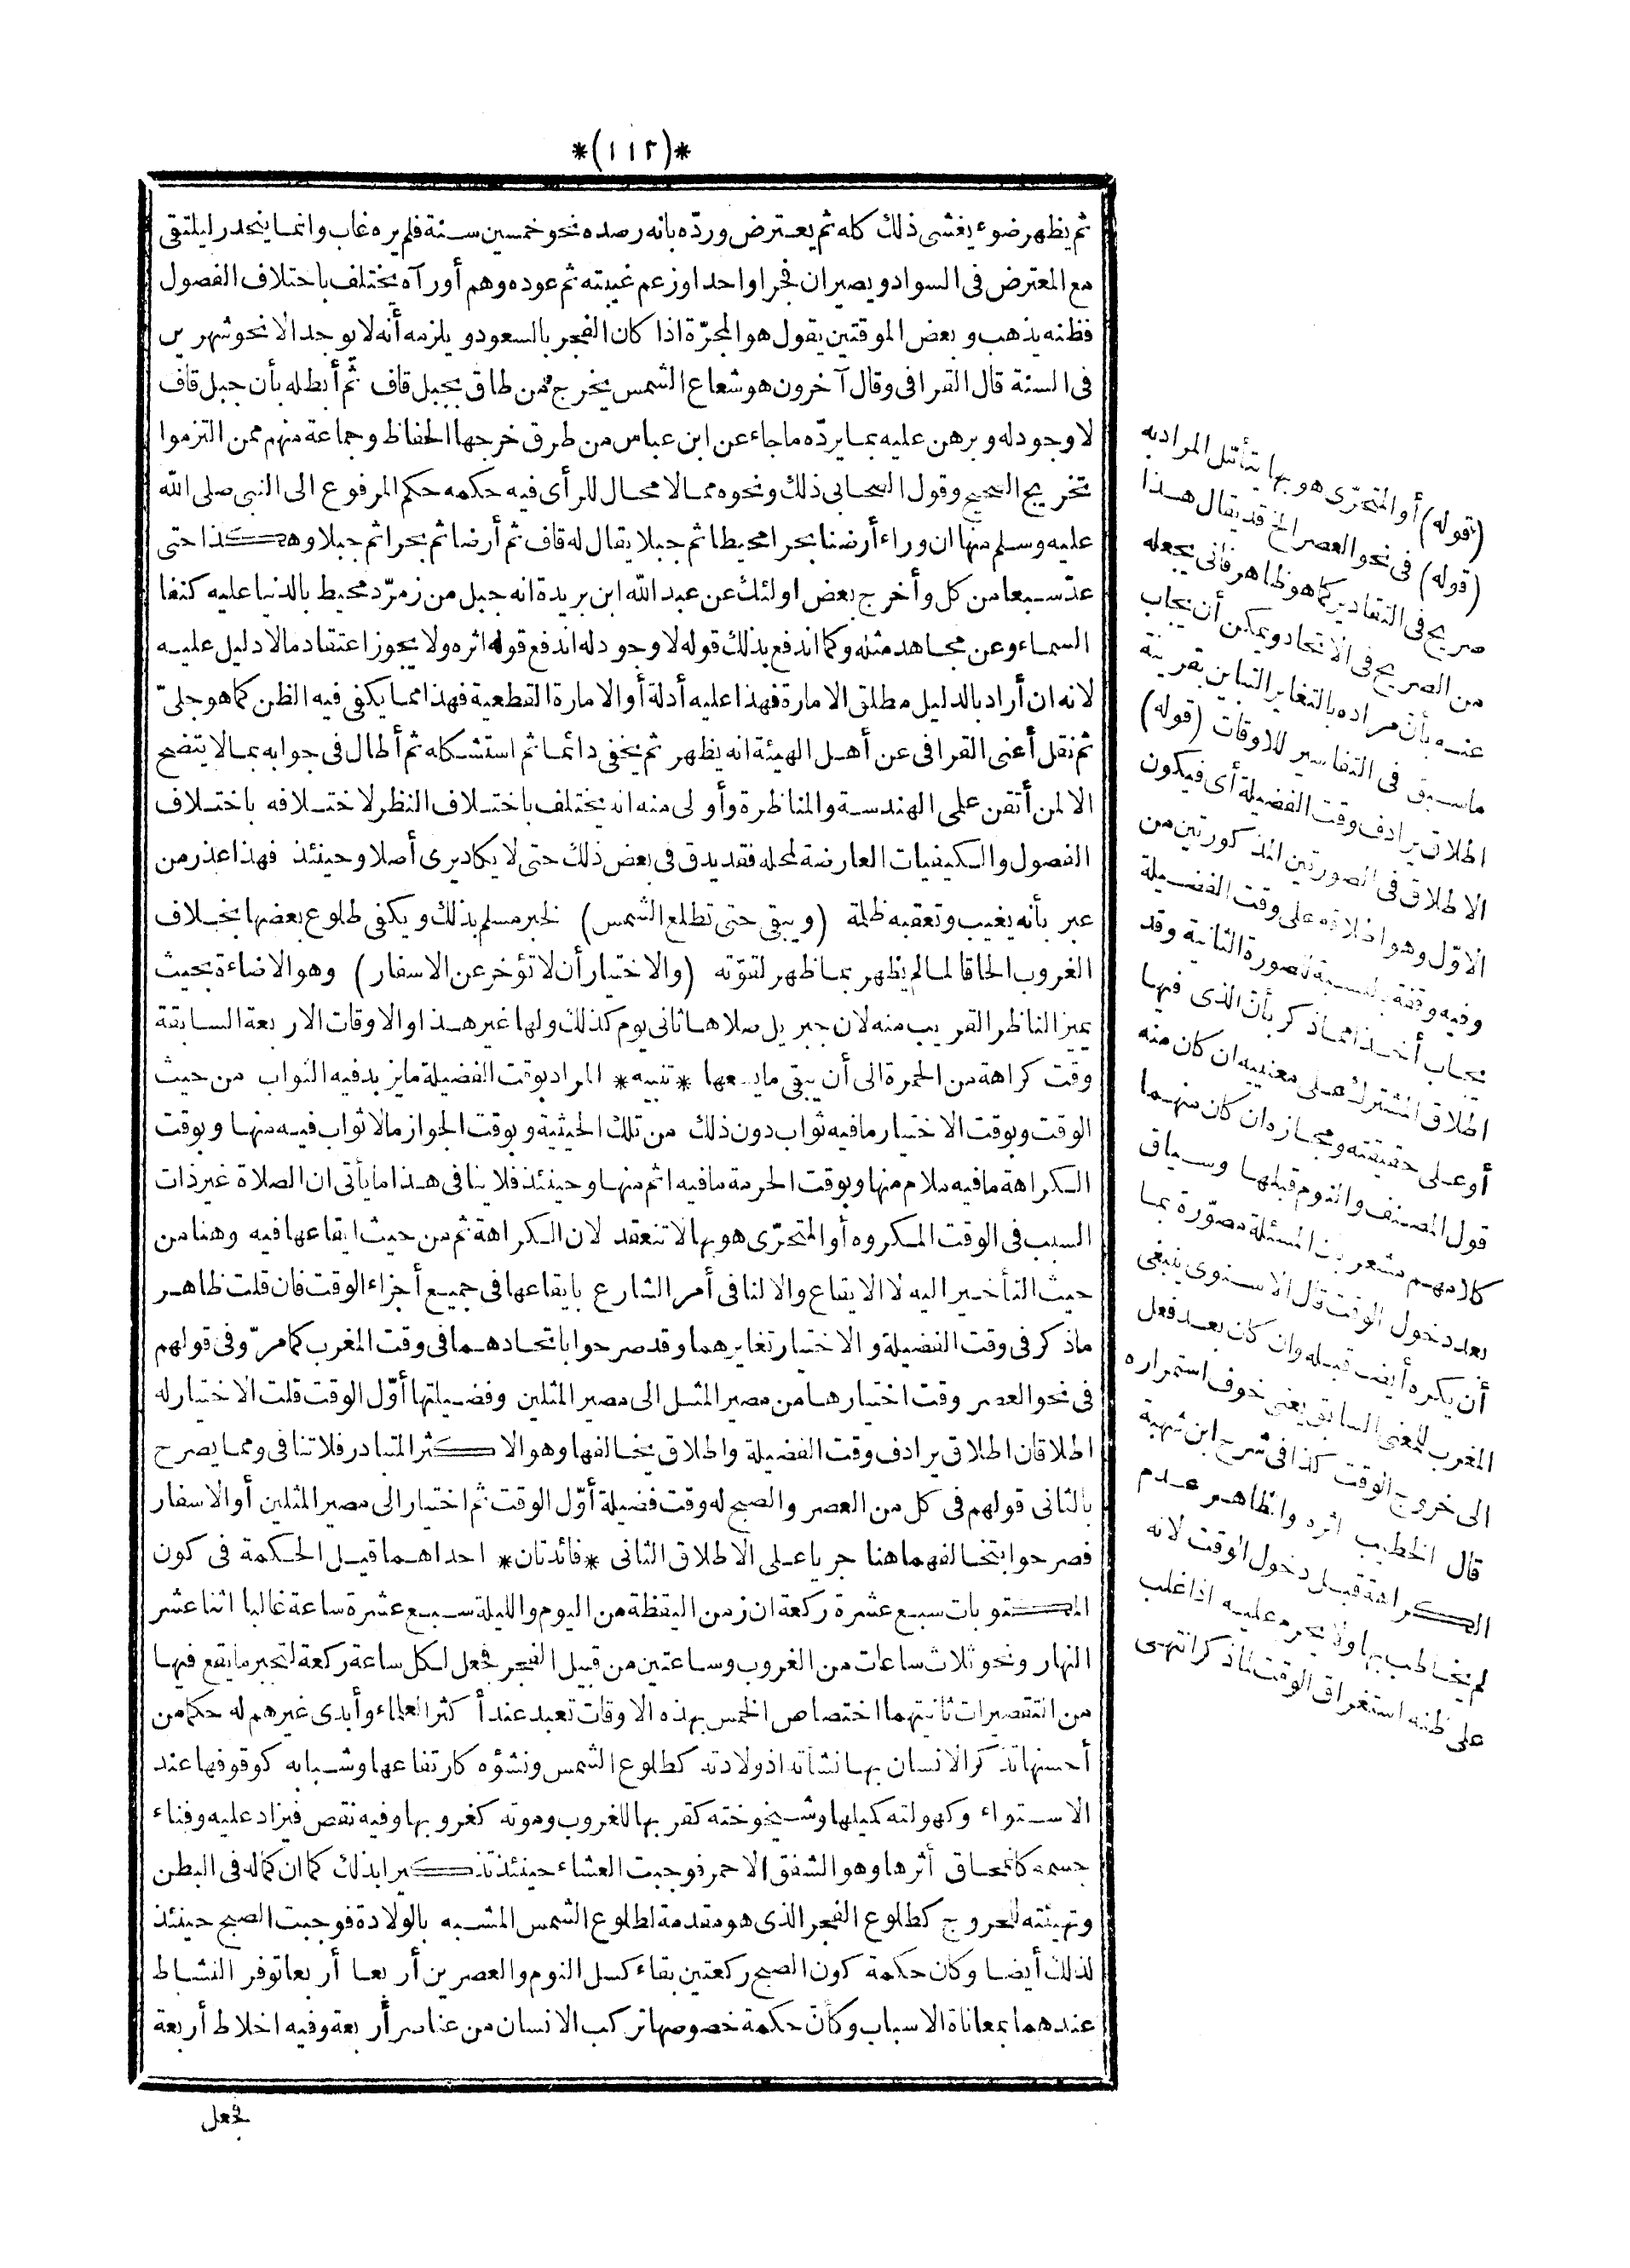 *(١١٢)*
ثم يظهر ضوء يغشى ذلك كله ثم يعترض وردّه بانه رصده نحو خمسين سنة فلم يره غاب وانما ينحدر ليلتقى
مع المعترض فى السواد ويصيران فجرا واحدا وزعم غيبته ثم عوده وهم أو رآه يختلف باختلاف الفصول
فظنه يذهب وبعض الموقتين يقول هو المجرّة اذا كان الفجر بالسعود ويلزمه أنه لا يوجد الا نحو شهرين
فى السنة قال القرافى وقال آخرون هو شعاع الشمس يخرج من طاق بجبل قاف ثم أبطله بأن جبل قاف
لا وجود له وبرهن عليه بما يردّه ما جاء عن ابن عباس من طرق خرجها الحفاظ وجماعة منهم ممن التزموا
تخريج الصحيح وقول الصحابى ذلك ونحوه مما لا مجال للرأى فيه حكمه حكم المرفوع الى النبى صلى الله
عليه وسلم منها ان وراء أرضنا بحرا محيطا ثم جبلا يقال له قاف ثم أرضا ثم بحرا ثم جبلا وهكذا حتى
عدّ سبعا من كل وأخرج بعض اولئك عن عبد الله ابن بريدة انه جبل من زمرّد محيط بالدنيا عليه كنفا
السماء وعن مجاهد مثله وكما اندفع بذلك قوله لا وجود له اندفع قوله اثره ولا يجوز اعتقاد ما لا دليل عليه
لانه ان أراد بالدليل مطلق الامارة فهذا عليه أدلة أو الامارة القطعية فهذا مما يكفى فيه الظن كما هو جلىّ
ثم نقل أعنى القرافى عن أهل الهيئة انه يظهر ثم يخفى دائما ثم استشكله ثم أطال فى جوابه بما لا يتضح
الا لمن أتقن على الهندسة والمناظرة وأولى منه انه يختلف باختلاف النظر لاختلافه باختلاف
الفصول والكيفيات العارضة لمحله فقد يدق فى بعض ذلك حتى لا يكاد يرى أصلا وحينئذ فهذا عذر من
عبر بأنه يغيب وتعقبه ظلمة (ويبقى حتى تطلع الشمس) لخبر مسلم بذلك ويكفى طلوع بعضها بخلاف
الغروب الحاقا لما لم يظهر بما ظهر لقوّته (والاختيار أن لا تؤخر عن الاسفار) وهو الاضاءة بحيث
يميز الناظر القريب منه لان جبريل صلاها ثانى يوم كذلك ولها غير هذا والاوقات الاربعة السابقة
وقت كراهة من الحمرة الى أن يبقى ما يسعها *تنبيه* المراد بوقت الفضيلة ما يزيد فيه الثواب من حيث
الوقت وبوقت الاختيار ما فيه ثواب دون ذلك من تلك الحيثية وبوقت الجواز ما لا ثواب فيه منها وبوقت
الكراهة ما فيه ملام منها وبوقت الحرمة ما فيه اثم منها وحينئذ فلا ينافى هذا ما يأتى ان الصلاة غير ذات
السبب فى الوقت المكروه أو المتحرّى هو بها لا تنعقد لان الكراهة ثم من حيث ايقاعها فيه وهنا من
حيث التأخير اليه لا الايقاع والا لنافى أمر الشارع بايقاعها فى جميع أجزاء الوقت فان قلت ظاهر
ما ذكر فى وقت الفضيلة والاختيار تغايرهما وقد صرحوا باتحادهما فى وقت المغرب كما مرّ وفى قولهم
فى نحو العصر وقت اختيارها من مصير المثل الى مصير المثلين وفضيلتها أوّل الوقت قلت الاختيار له
اطلاقان اطلاق يرادف وقت الفضيلة واطلاق يخالفها وهو الاكثر المتبادر فلا تنافى ومما يصرح
بالثانى قولهم فى كل من العصر والصبح له وقت فضيلة أوّل الوقت ثم اختيار الى مصير المثلين أو الاسفار
فصرحوا بتخالفهما هنا جريا على الاطلاق الثانى *فائدتان* احداهما قيل الحكمة فى كون
المكتوبات سبع عشرة ركعة ان زمن اليقظة من اليوم والليلة سبع عشرة ساعة غالبا اثنا عشر
النهار ونحو ثلاث ساعات من الغروب وساعتين من قبيل الفجر فجعل لكل ساعة ركعة لتجبر ما يقع فيها
من التقصيرات ثانيتهما اختصاص الخمس بهذه الاوقات تعبد عند أكثر العلماء وأبدى غيرهم له حكما من
أحسنها تذكر الانسان بها نشأته اذ ولادته كطلوع الشمس ونشؤه كارتفاعها وشبابه كوقوفها عند
الاستواء وكهولته كميلها وشيخوخته كقربها للغروب وموته كغروبها وفيه نقص فيزاد عليه وفناء
جسمه كانمحاق أثرها وهو الشفق الاحمر فوجبت العشاء حينئذ تذكيرا بذلك كما ان كماله فى البطن
وتهيئته للخروج كطلوع الفجر الذى هو مقدمة لطلوع الشمس المشبه بالولادة فوجبت الصبح حينئذ
لذلك أيضا وكان حكمة كون الصبح ركعتين بقاء كسل النوم والعصرين أربعا أربعا توفر النشاط
عندهما بمعاناة الاسباب وكأن حكمة خصوصها تركب الانسان من عناصر أربعة وفيه اخلاط أربعة
فجعل
(قوله) أو المتحرّى هو بها يتأمّل المراد به
(قوله) فى نحو العصر الخ قد يقال هذا
صريح فى التغاير كما هو ظاهر فانى يجعله
من الصريح فى الاتحاد ويمكن أن يجاب
عنه بأن مراده بالتغاير التباين بقرينة
ما سبق فى التفاسير للاوقات (قوله)
اطلاق يرادف وقت الفضيلة أى فيكون
الاطلاق فى الصورتين المذكورتين من
الاوّل وهو اطلاقه على وقت الفضيلة
وفيه وقفة بالنسبة للصورة الثانية وقد
يجاب أخذا مما ذكر بأن الذى فيها
اطلاق المشترك على معنييه ان كان منه
أو على حقيقته ومجازه ان كان منهما
قول المصنف والنوم قبلها وسياق
كلامهم مشعر بان المسئلة مصوّرة بما
بعد دخول الوقت قال الاسنوى ينبغى
أن يكره أيضا قبله وان كان بعد فعل
المغرب للمعنى السابق يعنى خوف استمراره
الى خروج الوقت كذا فى شرح ابن شهبة
قال الخطيب اثره والظاهر عدم
الكراهة قبل دخول الوقت لانه
لم يخاطب بها ولا يحرم عليه اذا غلب
على ظنه استغراق الوقت لما ذكر انتهى